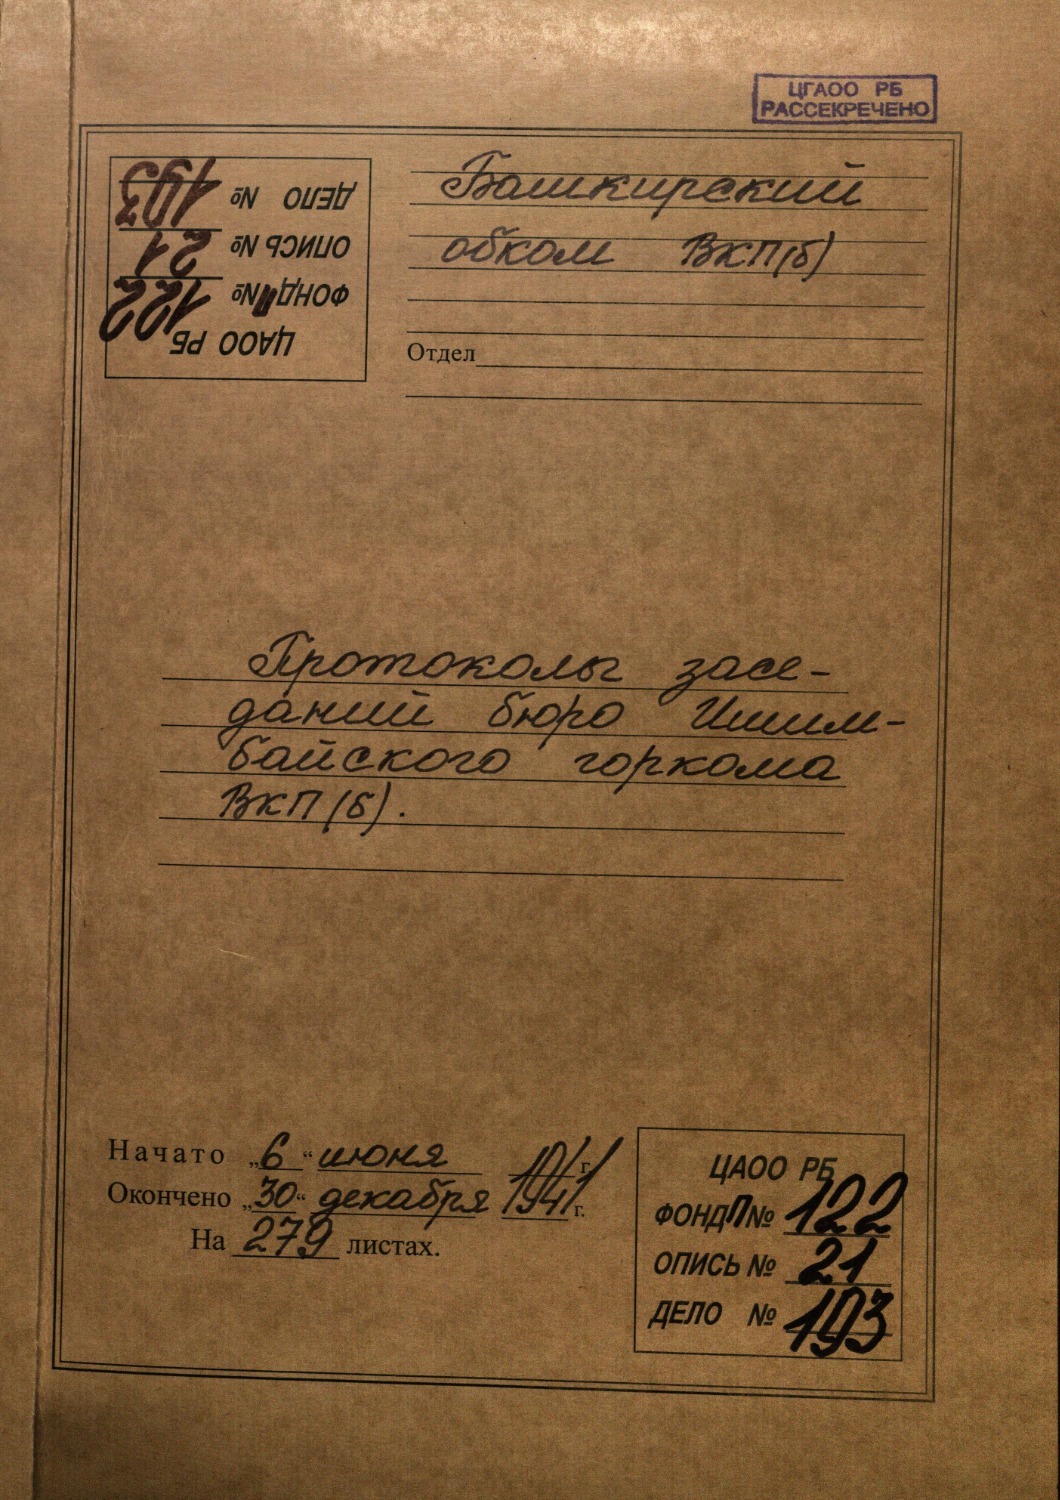 ЦГАОО РБ
РАССЕКРЕЧЕНО
ЦАОО РБ
ФОНД П № 122
ОПИСЬ № 21
ДЕЛО № 193
Башкирский
обком ВКП(б)
Отдел
Протоколы засе-
даний бюро Ишим-
байского горкома
ВКП(б).
Начато „6“ июня 1941 г.
Окончено „30“ декабря 1941 г.
На 279 листах.
ЦАОО РБ
ФОНД П № 122
ОПИСЬ № 21
ДЕЛО № 193